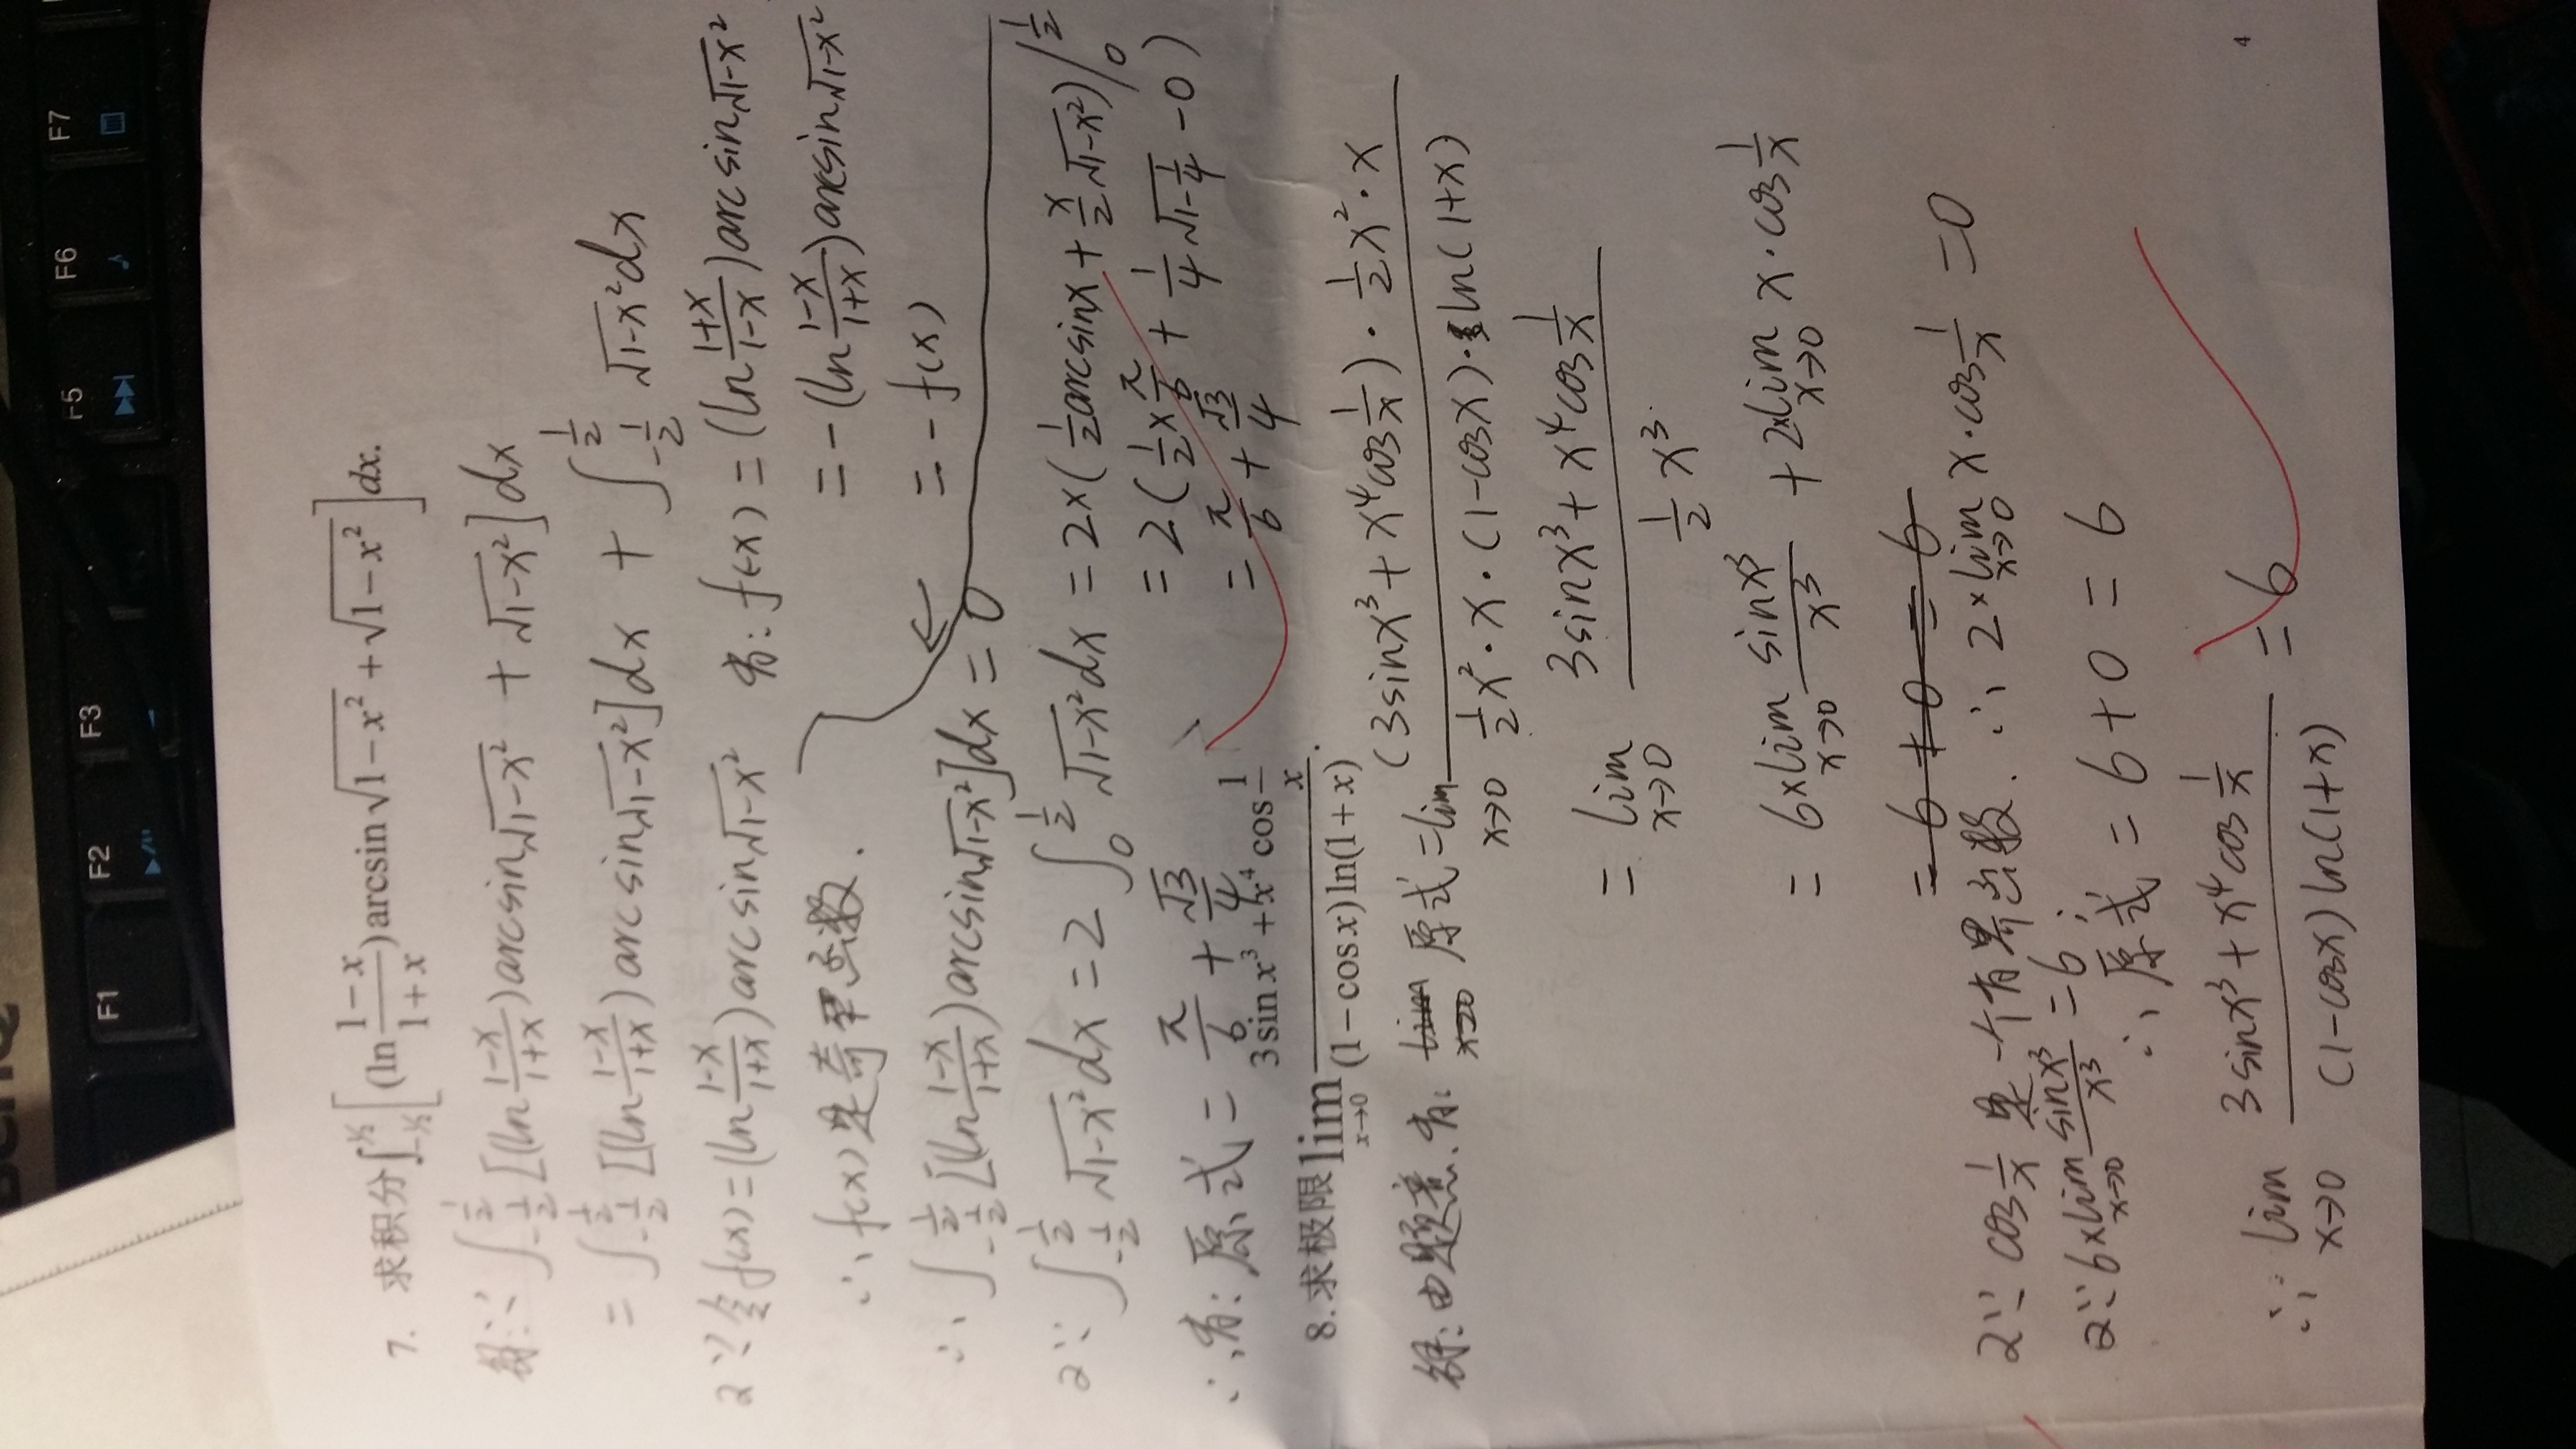 7. 求积分∫_{-1/2}^{1/2}[(ln (1-x)/(1+x)) arcsin√(1-x²) + √(1-x²)]dx.
解:∵ ∫_{-1/2}^{1/2}[(ln (1-x)/(1+x)) arcsin√(1-x²) + √(1-x²)]dx
= ∫_{-1/2}^{1/2}[(ln (1-x)/(1+x)) arcsin√(1-x²)]dx + ∫_{-1/2}^{1/2} √(1-x²)dx
又∵令f(x)=(ln (1-x)/(1+x)) arcsin√(1-x²) 有: f(-x)=(ln (1+x)/(1-x)) arcsin√(1-x²)
=-(ln (1-x)/(1+x)) arcsin√(1-x²)
∴f(x)是奇函数.
=-f(x)
∴ ∫_{-1/2}^{1/2}[(ln (1-x)/(1+x)) arcsin√(1-x²)]dx = 0
又∵ ∫_{-1/2}^{1/2} √(1-x²)dx = 2∫_0^{1/2} √(1-x²)dx = 2×(1/2 arcsinx + x/2 √(1-x²))|_0^{1/2}
= 2(1/2×π/6 + 1/4 √(1-1/4) - 0)
= π/6 + √3/4
∴有: 原式 = π/6 + √3/4
8.求极限 lim_{x→0} (3sin x³ + x⁴ cos 1/x)/((1-cos x)ln(1+x)).
解:由题意,有: 原式 = lim_{x→0} ((3sinx³ + x⁴cos 1/x)·1/2 x²·x)/(1/2 x²·x·(1-cosx)·ln(1+x))
= lim_{x→0} (3sinx³ + x⁴cos 1/x)/(1/2 x³)
= 6×lim_{x→0} sinx³/x³ + 2×lim_{x→0} x·cos 1/x
= 6 + 0 = 6
又∵ cos 1/x 是一个有界函数. ∴ 2×lim_{x→0} x·cos 1/x = 0
又∵ 6×lim_{x→0} sinx³/x³ = 6
∴原式 = 6+0 = 6
∴ lim_{x→0} (3sinx³ + x⁴cos 1/x)/((1-cosx)ln(1+x)) = 6
4
F1
F2
F3
F5
F6
F7